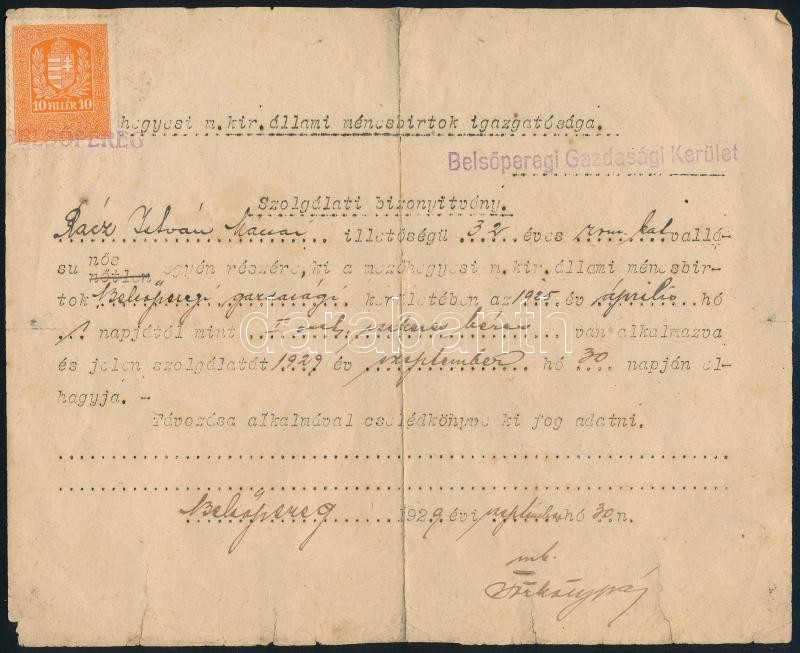 10 FILLÉR 10
BELSŐPEREG
hegyesi m.kir.állami ménesbirtok igazgatósága.
Belsőperegi Gazdasági Kerület
Szolgálati bizonyitvány.
Rácz István illetőségü 32 éves rom. kat vallá-
su nős nőtlen egyén részére, ki a mezőhegyesi m.kir.állami ménesbir-
tok Belsőperegi gazdasági kerületében az 1925 év április hó
1 napjától mint I oszt. szekeres béres van alkalmazva
és jelen szolgálatát 1929 év szeptember hó 30 napján el-
hagyja. -
Távozása alkalmával cselédkönyve ki fog adatni.
Belsőpereg 1929 évi szeptember hó 30 n.
mk.
darabanth